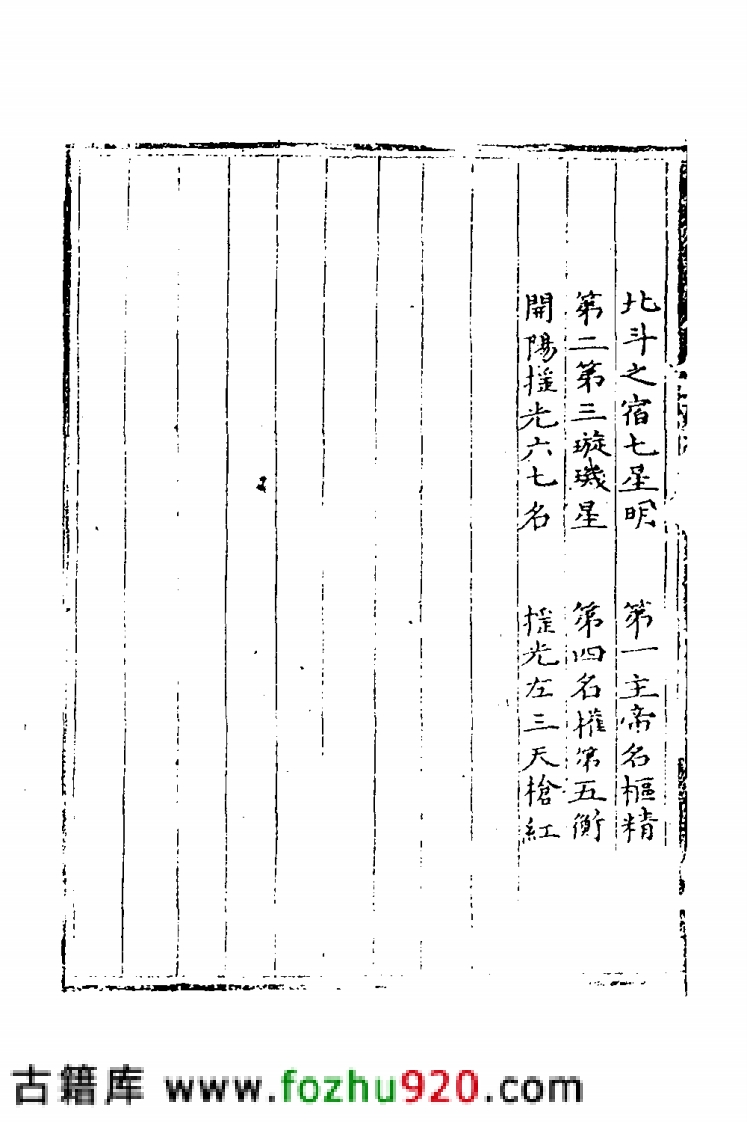 北斗之宿七星明　第一主帝名樞精
第二第三璇璣星　第四名權第五衡
開陽揺光六七名　揺光左三天槍紅
古籍库 www.fozhu920.com